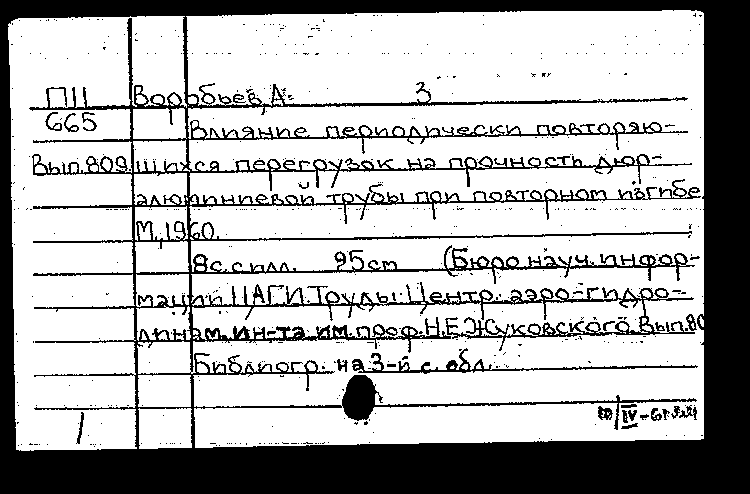 П11 Воробьев, А. 3
665 Влияние периодически повторяю-
Вып.809. щихся перегрузок на прочность дюр-
алюминиевой трубы при повторном изгибе
М., 1960.
8с. с илл. 95см (Бюро науч. инфор-
мации ЦАГИ. Труды. Центр. аэро-гидро-
динам. ин-та им. проф. Н.Е. Жуковского. Вып. 80
Библиогр. на 3-й с. обл.
1